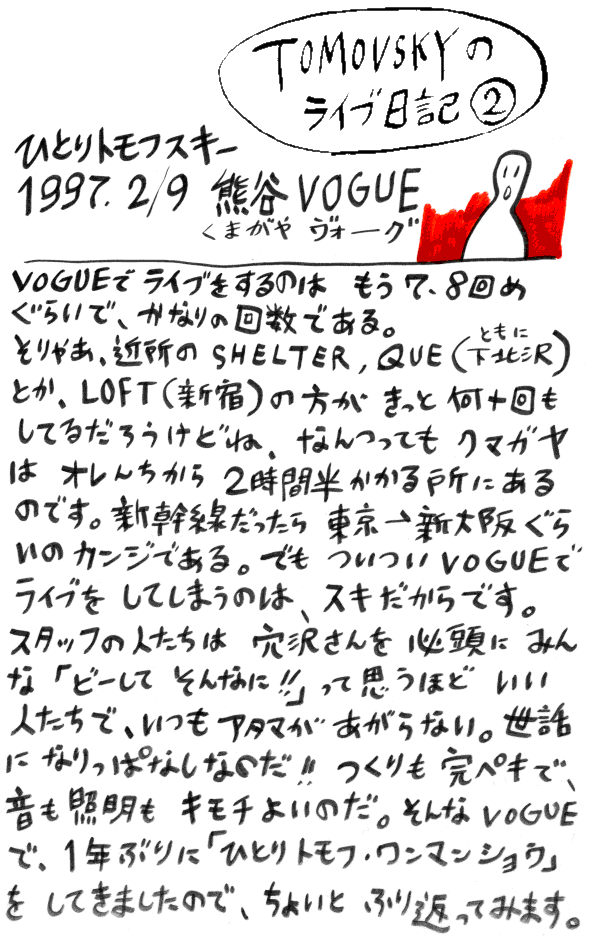 TOMOVSKYの
ライブ日記②
ひとりトモフスキー
1997. 2/9 熊谷 VOGUE
くまがや ヴォーグ
VOGUEで ライブをするのは もう 7、8回め
ぐらいで、かなりの回数である。
そりゃあ、近所の SHELTER, QUE (下北沢)
ともに
とか、LOFT(新宿)の方が きっと 何十回も
してるだろうけどね、なんつっても クマガヤ
は オレんちから 2時間半かかる所にある
のです。新幹線だったら 東京→新大阪ぐら
いのカンジである。でも ついつい VOGUEで
ライブを してしまうのは、スキだからです。
スタッフの人たちは 穴沢さんを 必頭に みん
な「どーして そんなに!!」って思うほど いい
人たちで、いつもアタマが あがらない。世話
に なりっぱなしなのだ!! つくりも 完ペキで、
音も照明も キモチよいのだ。そんな VOGUE
で、1年ぶりに「ひとりトモフ・ワンマンショウ」
を してきましたので、ちょいと ふり返ってみます。